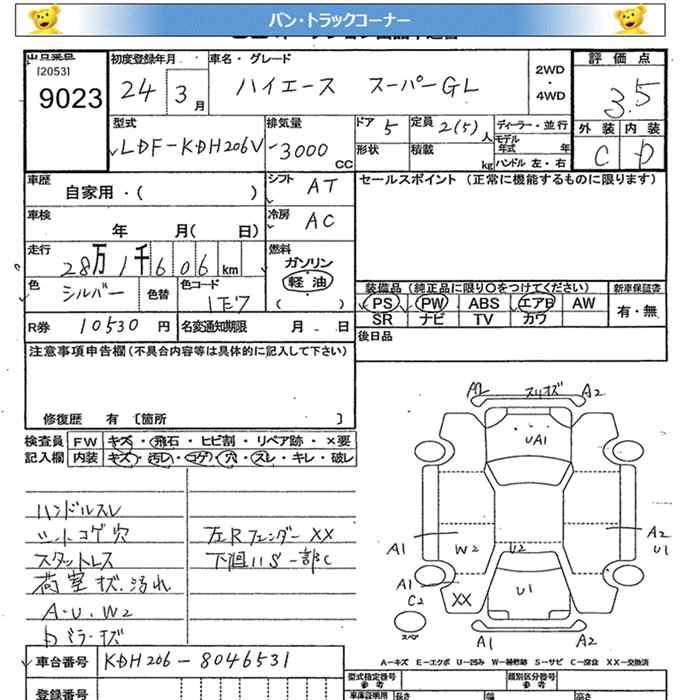 バン・トラックコーナー
出品票番
[2053]
9023
初度登録年月
24 3月
車名・グレード
ハイエース スーパーGL
2WD
・
4WD
評価点
3.5
外装 内装
C D
型式
LDF-KDH206V
排気量
3000 CC
ドア 5
定員 2(5)人
形状
積載 kg
ディーラー・並行
モデル年式 年
ハンドル 左・右
車歴
自家用・( )
シフト AT
セールスポイント (正常に機能するものに限ります)
車検
年 月( 日)
冷房 AC
走行
28万1千606km
燃料
ガソリン
軽油
( )
色
シルバー
色替
色コード
1E7
装備品(純正品に限り○をつけてください)
新車保証書
PS PW ABS エアB AW
SR ナビ TV カワ
有・無
R券 10530円
名変通知期限 月 日
後日品
注意事項申告欄(不具合内容等は具体的に記入して下さい)
修復歴 有 [箇所 ]
検査員 FW キズ・飛石・ヒビ割・リペア跡・×要
記入欄 内装 キズ・汚レ・コゲ・穴・スレ・キレ・破レ
ハンドルスレ
シートコゲ穴
スタットレス
荷室キズ、汚れ
A・U・W2
左Rフェンダー XX
下廻りS 一部C
A2 スリキズ A2
UA1
A1
W2
U2
A2
U1
A1
C2
XX
U1
スペア
A1 A2
A-キズ E-エクボ U-凹み W-補修跡 S-サビ C-腐食 XX-交換済
車台番号 KDH206-8046531
登録番号
型式指定番号
参考
類別区分番号
参考
車庫証明用
長さ 幅 高さ